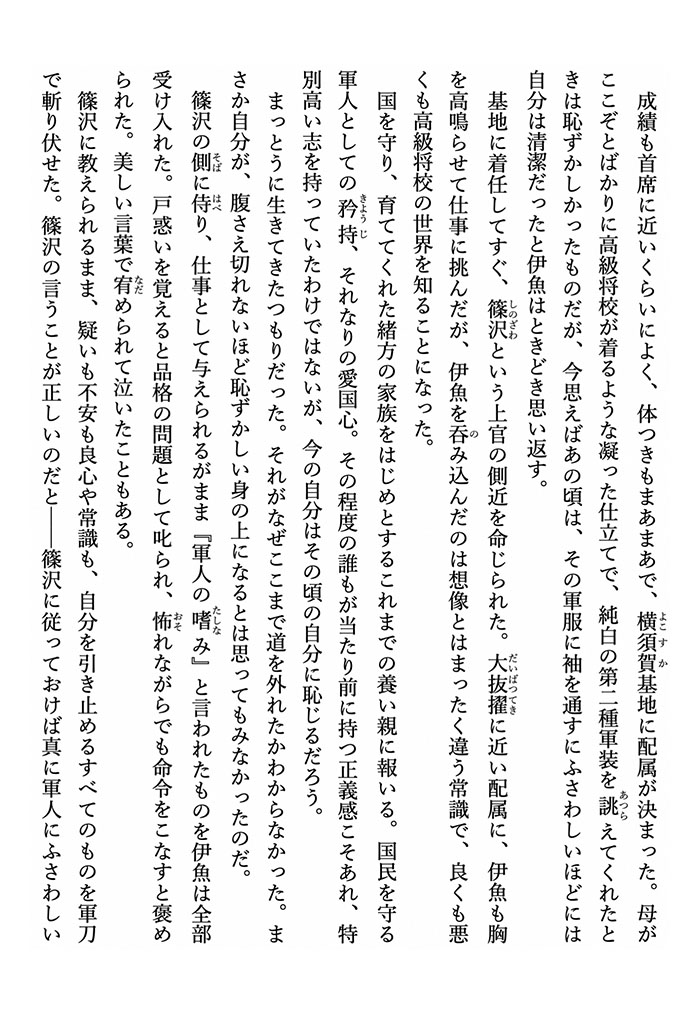 成績も首席に近いくらいによく、体つきもまあまあで、横須賀基地に配属が決まった。母が
ここぞとばかりに高級将校が着るような凝った仕立てで、純白の第二種軍装を誂えてくれたと
きは恥ずかしかったものだが、今思えばあの頃は、その軍服に袖を通すにふさわしいほどには
自分は清潔だったと伊魚はときどき思い返す。
基地に着任してすぐ、篠沢という上官の側近を命じられた。大抜擢に近い配属に、伊魚も胸
を高鳴らせて仕事に挑んだが、伊魚を呑み込んだのは想像とはまったく違う常識で、良くも悪
くも高級将校の世界を知ることになった。
国を守り、育ててくれた緒方の家族をはじめとするこれまでの養い親に報いる。国民を守る
軍人としての矜持、それなりの愛国心。その程度の誰もが当たり前に持つ正義感こそあれ、特
別高い志を持っていたわけではないが、今の自分はその頃の自分に恥じるだろう。
まっとうに生きてきたつもりだった。それがなぜここまで道を外れたかわからなかった。ま
さか自分が、腹さえ切れないほど恥ずかしい身の上になるとは思ってもみなかったのだ。
篠沢の側に侍り、仕事として与えられるがまま『軍人の嗜み』と言われたものを伊魚は全部
受け入れた。戸惑いを覚えると品格の問題として叱られ、怖れながらでも命令をこなすと褒め
られた。美しい言葉で宥められて泣いたこともある。
篠沢に教えられるまま、疑いも不安も良心や常識も、自分を引き止めるすべてのものを軍刀
で斬り伏せた。篠沢の言うことが正しいのだと――篠沢に従っておけば真に軍人にふさわしい